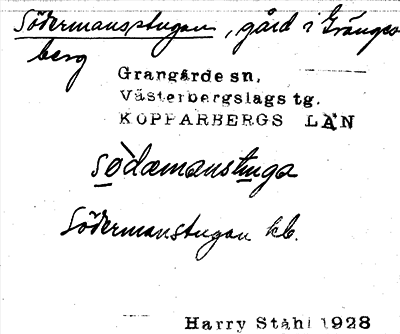 Södermanstugan, gård i Gränges
berg
Grangärde sn.
Västerbergslags tg.
KOPPARBERGS LÄN
södæmanstuga
Södermanstugan kb.
Harry Ståhl 1928